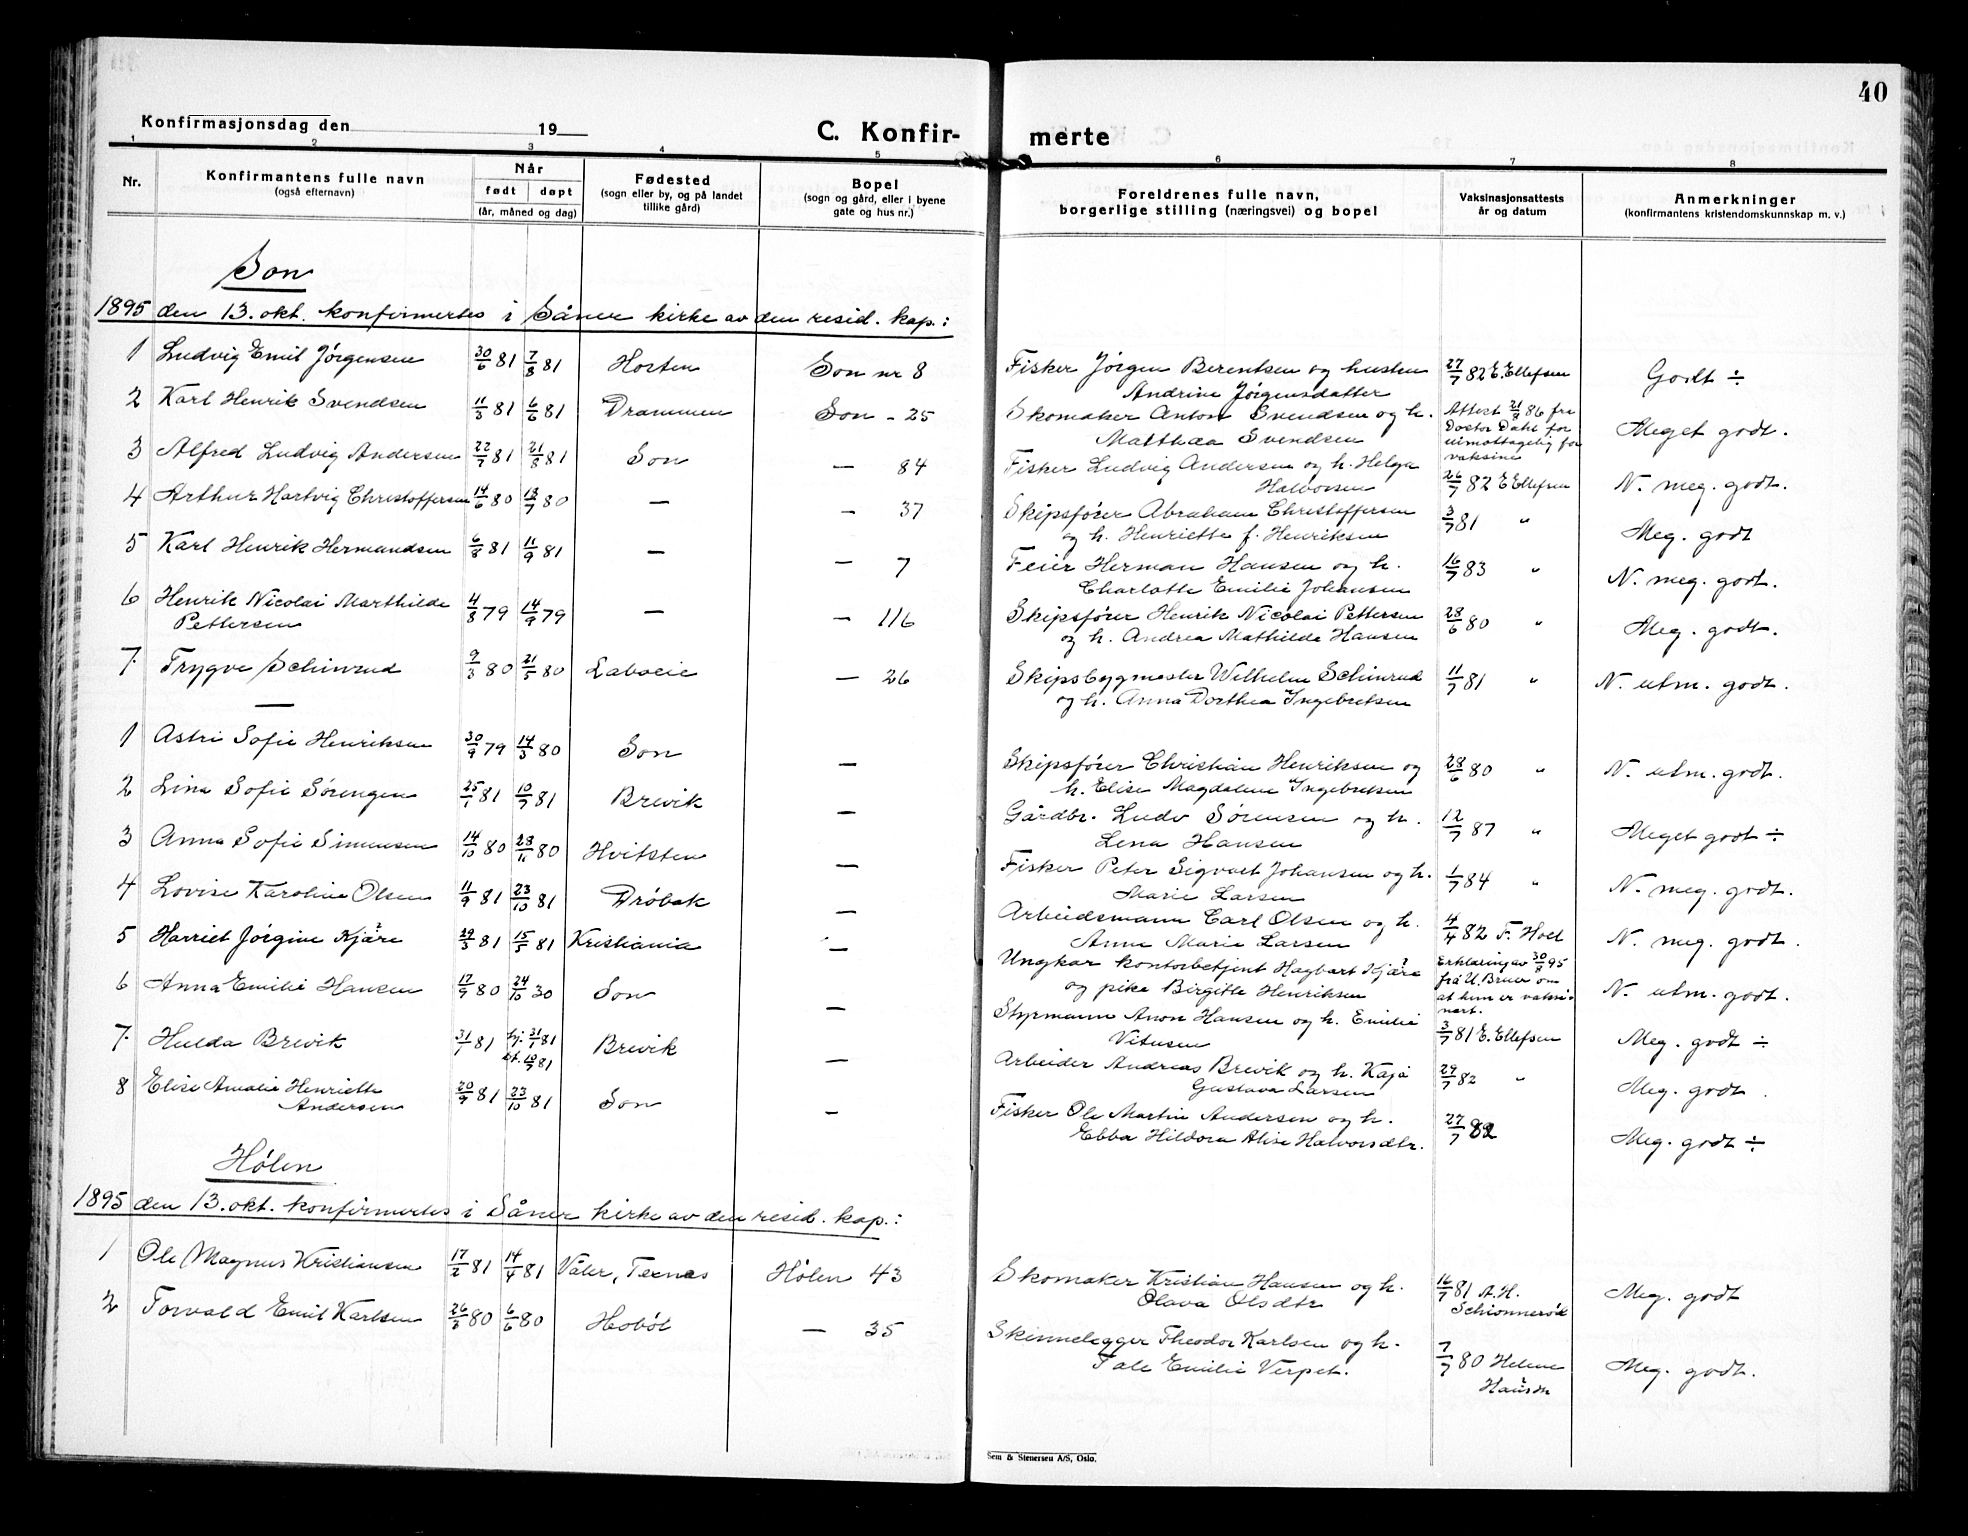 40
Konfirmasjonsdag den 19
C. Konfir-
merte
1 2 3 4 5 6 7 8
Nr.
Konfirmantens fulle navn
(også efternavn)
Når
født døpt
(år, måned og dag)
Fødested
(sogn eller by, og på landet
tillike gård)
Bopel
(sogn og gård, eller i byene
gate og hus nr.)
Foreldrenes fulle navn,
borgerlige stilling (næringsvei) og bopel
Vaksinasjonsattests
år og datum
Anmerkninger
(konfirmantens kristendomskunnskap m. v.)
Son
1895 den 13. okt. konfirmertes i Såner kirke av den resid. kap.:
1 Ludvig Emil Jørgensen 30/6 81 7/8 81 Horten Son nr 8 Fisker Jørgen Berentsen og hustru 27/7 82 E. Ellefsen Godt ÷
Andrine Jørgensdatter
2 Karl Henrik Svendsen 11/3 81 6/6 81 Drammen Son - 25 Skomaker Anton Svendsen og h. Attest 21/8 86 fra Meget godt.
Matthæa Svendsen Doctor Dahl for
uimottagelig for
vaksine
3 Alfred Ludvig Andersen 22/7 81 21/8 81 Son — 84 Fisker Ludvig Andersen og h. Helga 26/7 82 E Ellefsen N. meg. godt.
Halvorsen
4 Arthur Hartvig Christoffersen 14/6 80 13/7 80 — — 37 Skipsfører Abraham Christoffersen 3/7 81 " Meg. godt
og h. Henriette f. Henriksen
5 Karl Henrik Hermandsen 6/8 81 11/9 81 — — 7 Feier Herman Hansen og h. 16/7 83 " N. meg. godt.
Charlotte Emilie Johansen
6 Henrik Nicolai Marthilde 4/8 79 14/9 79 — — 116 Skipsfører Henrik Nicolai Pettersen 28/6 80 " Meg. godt.
Pettersen og h. Andrea Mathilde Hansen
7. Trygve Schinrud 9/3 80 21/5 80 Laboeie — 26 Skipsbygmester Wilhelm Schinrud 11/7 81 " N. utm. godt.
og h. Anna Dorthea Ingebretsen
—
1 Astri Sofie Henriksen 30/9 79 14/3 80 Son — Skipsfører Christian Henriksen og 28/6 80 " N. utm. godt.
h. Elise Magdalene Ingebretsen
2 Lina Sofie Sørengen 25/1 81 10/7 81 Brevik — Gårdbr. Ludv Sørensen og h. 12/7 87 " Meget godt ÷
Lena Hansen
3 Anna Sofie Simensen 14/10 80 28/11 80 Hvitsten — Fisker Peter Sigvart Johansen og h. 1/7 84 " N. meg. godt.
Marie Larsen
4 Lovise Karoline Olsen 11/9 81 23/10 81 Drøbak — Arbeidsmann Carl Olsen og h. 4/4 82 F. Holt N. meg. godt.
Anne Marie Larsen
5 Harriet Jørgine Kjäre 29/3 81 15/5 81 Kristiania — Ungkar kontorbetjent Hagbart Kjäre Erklæring av 30/8 95 N. utm. godt.
og pike Birgitte Henriksen frå U. Bruer om
at hun er vaksi-
nert.
6 Anna Emilie Hansen 17/9 80 24/10 30 Son — Styrmann Anon Hansen og h. Emilie 3/7 81 E. Ellefsen Meg. godt ÷
Vitusen
7. Hulda Brevik 31/1 81 hj. 31/1 81 Brevik — Arbeider Andreas Brevik og h. Kaja 29/7 82 " Meg. godt.
st. 10/7 81 Gustava Larsen
8 Elise Amalie Henriette 20/9 81 23/10 81 Son — Fisker Ole Martin Andersen og h. 27/7 82 Meg. godt ÷
Andersen Ebba Hildora Alise Halvorsdtr.
Hølen
1895 den 13. okt. konfirmertes i Såner kirke av den resid. kap.:
1 Ole Magnus Kristiansen 17/2 81 14/4 81 Våler, Ternes Hølen 43 Skomaker Kristian Hansen og h. 16/7 81 A.H. Meg. godt
Olava Olsdtr Schionnerød
2 Torvald Emil Karlsen 26/3 80 6/6 80 Hobøl — 35 Skinnelegger Theodor Karlsen og h. 7/7 80 Helene Meg. godt.
Tale Emilie Verpet. Hansen
Sem & Stenersen A/S, Oslo.